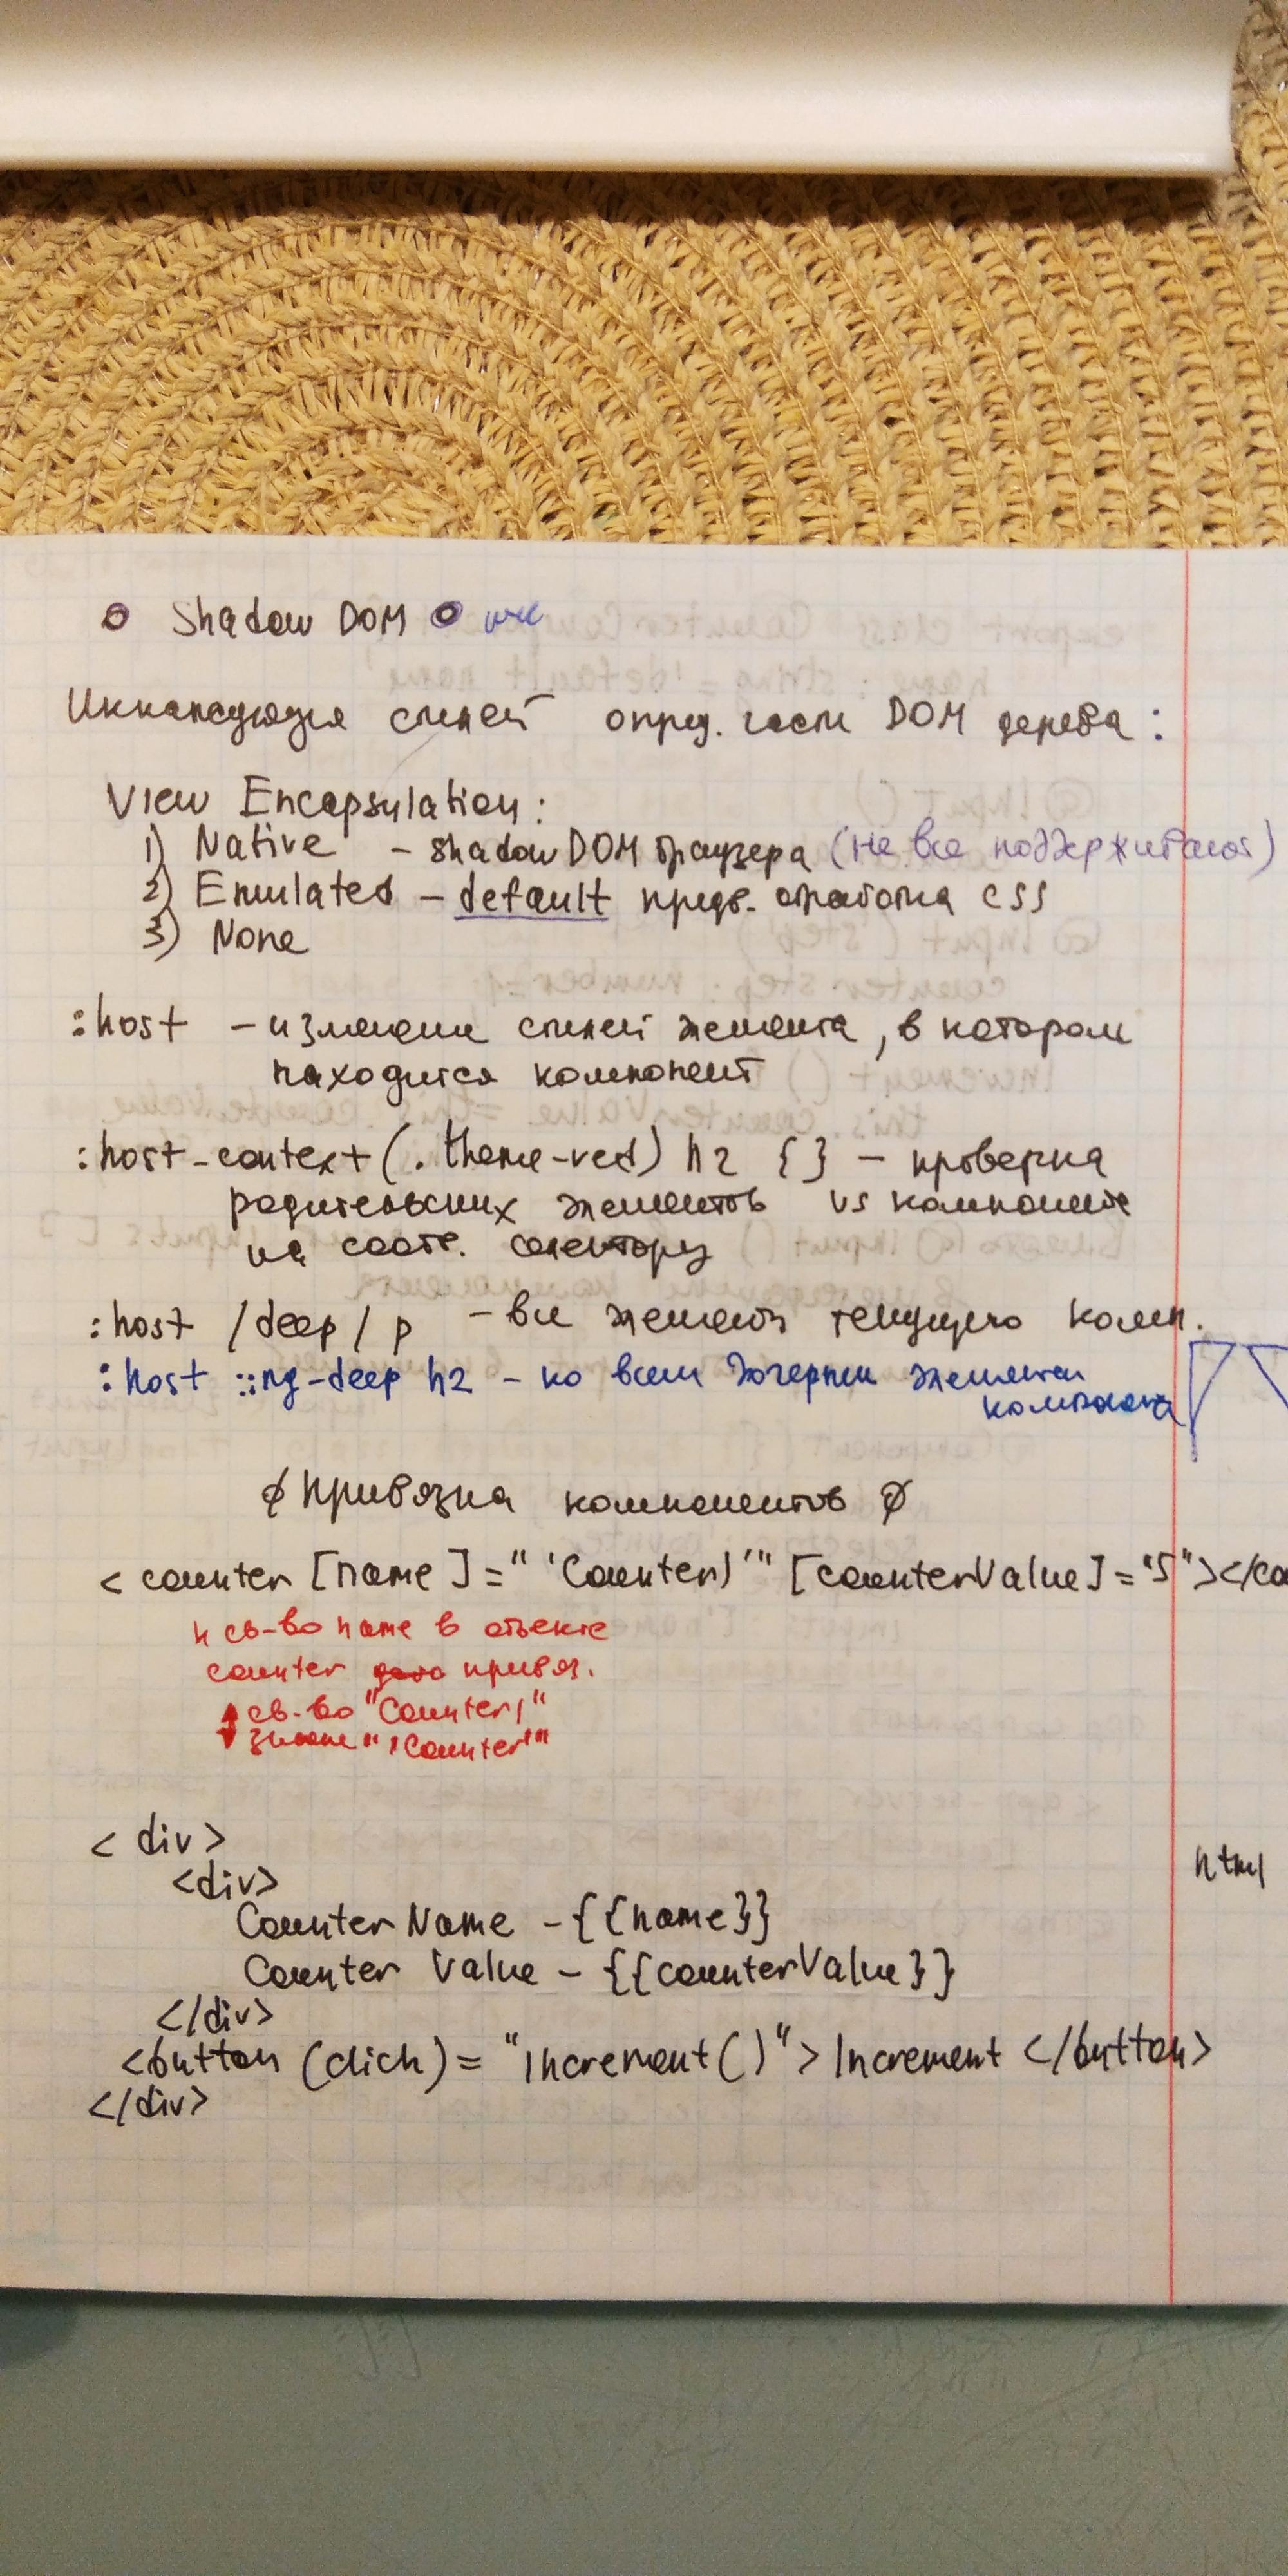 Shadow DOM
Инкапсуляция стилей опред. части DOM дерева:
View Encapsulation:
1) Native - shadow DOM браузера (не все поддерживают)
2) Emulated - default предв. обработка css
3) None
:host - изменении стилей элемента, в котором
находится компонент
:host-context(.theme-red) h2 {} - проверка
родительских элементов компонента
на соотв. селектору
:host /deep/ p - все элементы текущего комп.
:host ::ng-deep h2 - ко всем дочерним элементам
компонента
Привязка компонентов
<counter [name]="'Counter1'" [counterValue]="5"></co
к св-во name в объекте
counter привяз.
св-во "Counter1"
"'Counter'"
<div>
<div>
html
Counter Name - {{name}}
Counter Value - {{counterValue}}
</div>
<button (click)="increment()">Increment </button>
</div>